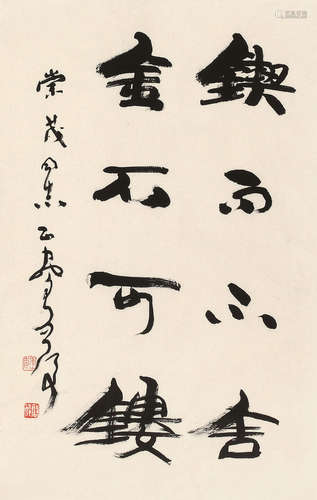 锲而不舍
金石可镂
崇茂同志正